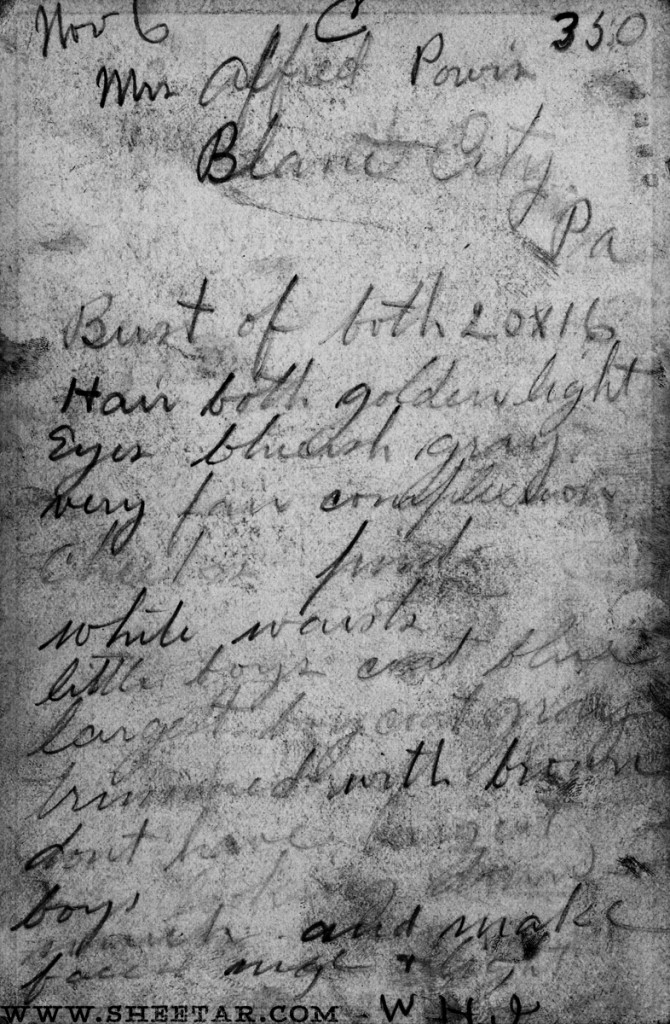 Nov 6 C 350
Mrs Alfred Powis
City
Pa
Bust of both 20x16
Hair both golden light
Eyes blueish gray
very fair complexion
Cheeks pink
white waists
little boys coat blue
largest boy coat gray
trimmed with brown
dont have largest
boys down
much and make
faces nice + light
WWW.SHEETAR.COM - W H J